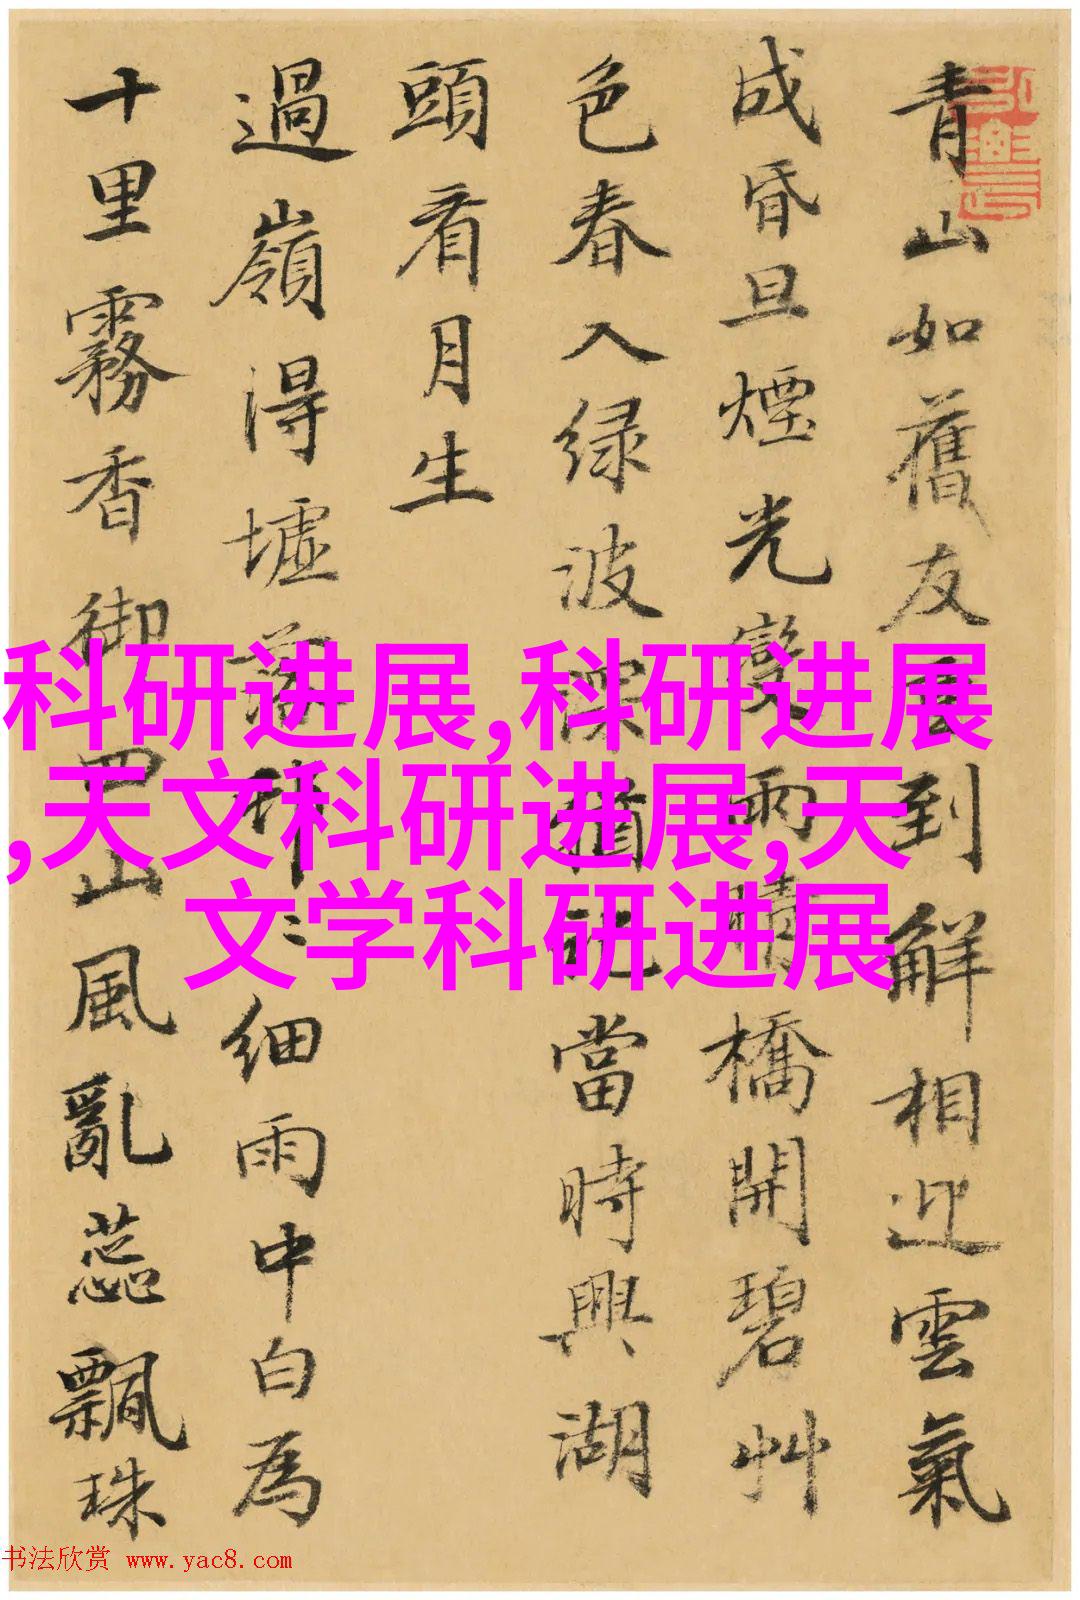 青山如舊友重到解相迎雲氣
成昏旦煙光變雨晴橋開碧艸
色春入绿波猶記當時興湖
頭看月生
過嶺得墟落細雨中白為
十里霧香御四山風亂蕊飄珠
科研进展,科研进展
,天文科研进展,天
文学科研进展
书法欣赏 www.yac8.com